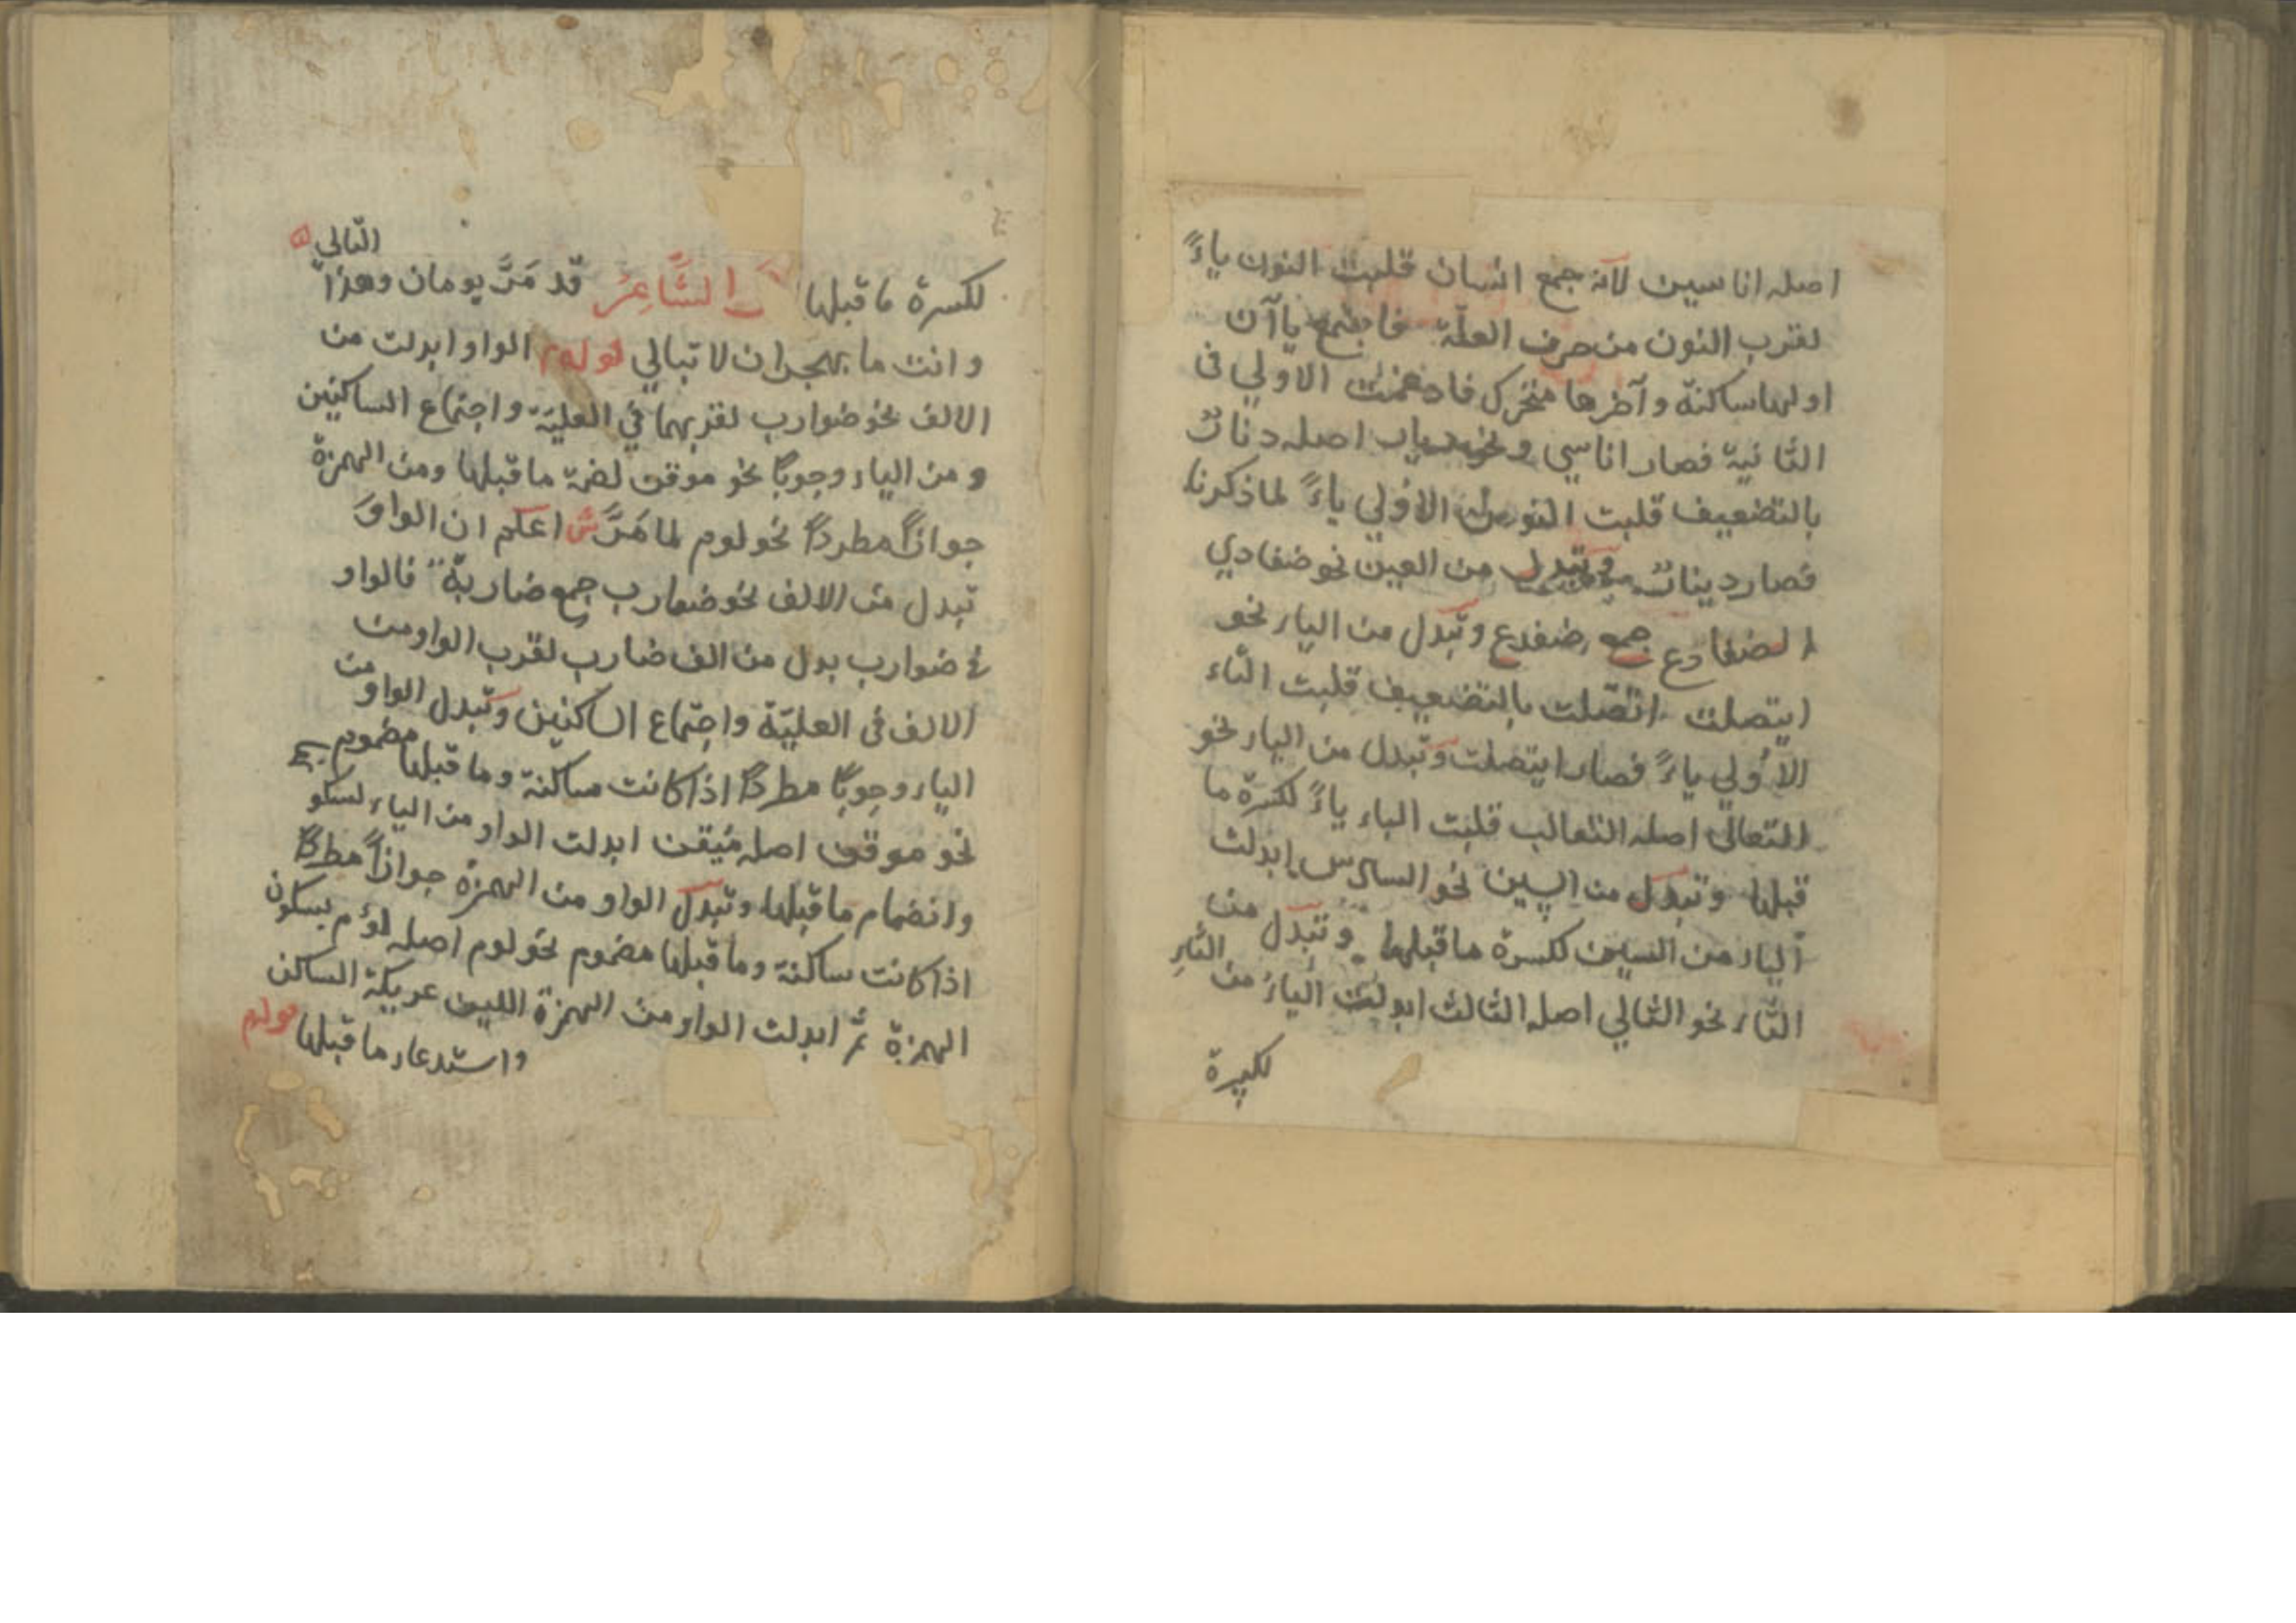 اصله اناسين لانه جمع انسان قلبت النون ياءً
لقرب النون من حرف العلة فاجتمع ياآن
اولهما ساكنة وآخرها متحرك فادغمت الاولي في
الثانية فصار اناسي ونحو دياب اصله دنّاب
بالتضعيف قلبت النون الاولي ياءً لما ذكرنا
فصار ديناب وتبدل من العين نحو ضفادي
الضفادع جمع ضفدع وتبدل من الياء نحو
ايتصلت اتّصلت بالتضعيف قلبت التاء
الأولي ياءً فصار ايتصلت وتبدل من الباء نحو
الثعالى اصله الثعالب قلبت الباء ياءً لكسرة ما
قبلها وتبدل من السين نحو السادس ابدلت
الياء من السين لكسرة ما قبلها وتبدل من
الثاء نحو الثالي اصله الثالث ابدلت الياء من الثاء
لكسرة
لكسرة ما قبلها الشَّاعِرُ قد مَرَّ يومان وهذا الثالي
وانت ما بهجران لا تبالي قوله الواو ابدلت من
الالف نحو ضوارب لقربهما في العليّة واجتماع الساكنين
ومن الياء وجوبًا نحو موقن لضمة ما قبلها ومن الهمزة
جوازًا مطردًا نحو لوم لما مَرَّ ش اعلم ان الواوَ
تبدل من الالف نحو ضوارب جمع ضاربة فالواو
في ضوارب بدل من الف ضارب لقرب الواو من
الالف في العليّة واجتماع الساكنين وتبدل الواو من
الياء وجوبًا مطردًا اذا كانت ساكنة وما قبلها مضموم
نحو موقن اصله مُيقن ابدلت الواو من الياء لسكو
وانضمام ما قبلها وتبدل الواو من الهمزة جوازًا مطردًا
اذا كانت ساكنة وما قبلها مضموم نحو لوم اصله لؤم بسكون
الهمزة ثم ابدلت الواو من الهمزة اللين عريكة الساكن
واستدعاء ما قبلها قوله